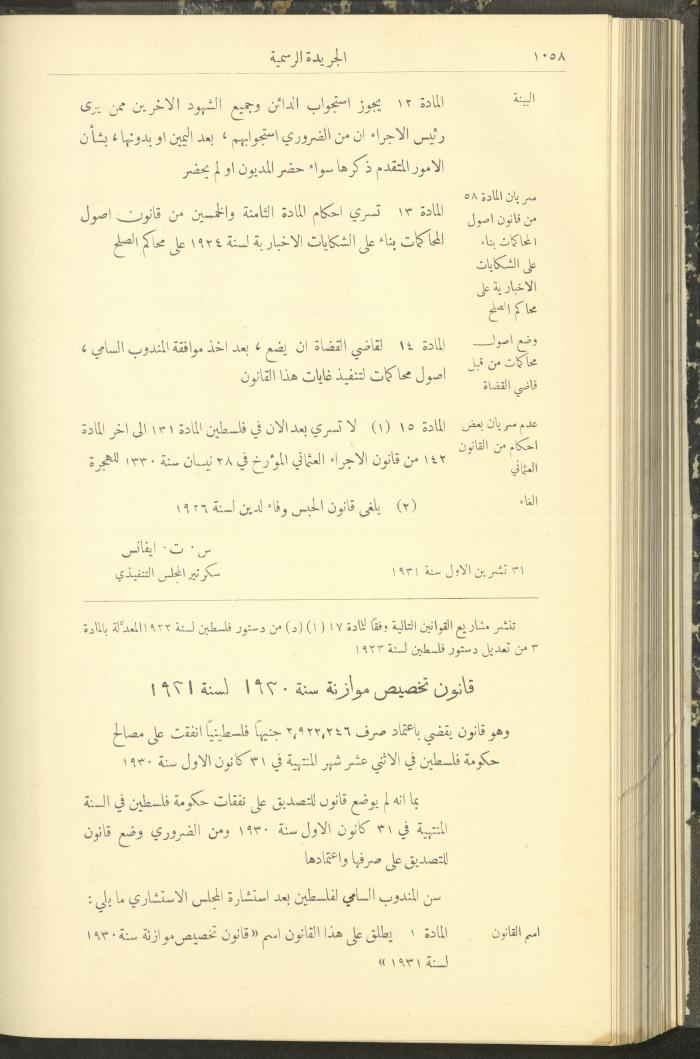 ١٠٥٨
الجريدة الرسمية
البينة
المادة ١٢ يجوز استجواب الدائن وجميع الشهود الاخرين ممن يرى
رئيس الاجراء ان من الضروري استجوابهم ، بعد اليمين او بدونها ، بشأن
الامور المتقدم ذكرها سواء حضر المديون او لم يحضر
سريان المادة ٥٨
من قانون اصول
المحاكمات بناء
على الشكايات
الاخبارية على
محاكم الصلح
المادة ١٣ تسري احكام المادة الثامنة والخمسين من قانون اصول
المحاكمات بناء على الشكايات الاخبارية لسنة ١٩٢٤ على محاكم الصلح
وضع اصول
محاكمات من قبل
قاضي القضاة
المادة ١٤ لقاضي القضاة ان يضع ، بعد اخذ موافقة المندوب السامي ،
اصول محاكمات لتنفيذ غايات هذا القانون
عدم سريان بعض
احكام من القانون
العثماني
المادة ١٥ (١) لا تسري بعد الان في فلسطين المادة ١٣١ الى اخر المادة
١٤٢ من قانون الاجراء العثماني المؤرخ في ٢٨ نيسان سنة ١٣٣٠ للهجرة
الغاء
(٢) يلغى قانون الحبس وفاء لدين لسنة ١٩٢٦
س. ت. ايفانس
٣١ تشرين الاول سنة ١٩٣١
سكرتير المجلس التنفيذي
تنشر مشاريع القوانين التالية وفقا للمادة ١٧ (١) (د) من دستور فلسطين لسنة ١٩٢٢ المعدّلة بالمادة
٣ من تعديل دستور فلسطين لسنة ١٩٢٣
قانون تخصيص موازنة سنة ١٩٣٠ لسنة ١٩٣١
وهو قانون يقضي باعتماد صرف ٢,٩٢٢,٢٤٦ جنيهاً فلسطينياً انفقت على مصالح
حكومة فلسطين في الاثني عشر شهر المنتهية في ٣١ كانون الاول سنة ١٩٣٠
بما انه لم يوضع قانون للتصديق على نفقات حكومة فلسطين في السنة
المنتهية في ٣١ كانون الاول سنة ١٩٣٠ ومن الضروري وضع قانون
للتصديق على صرفها واعتمادها
سن المندوب السامي لفلسطين بعد استشارة المجلس الاستشاري ما يلي :
اسم القانون
المادة ١ يطلق على هذا القانون اسم « قانون تخصيص موازنة سنة ١٩٣٠
لسنة ١٩٣١ »